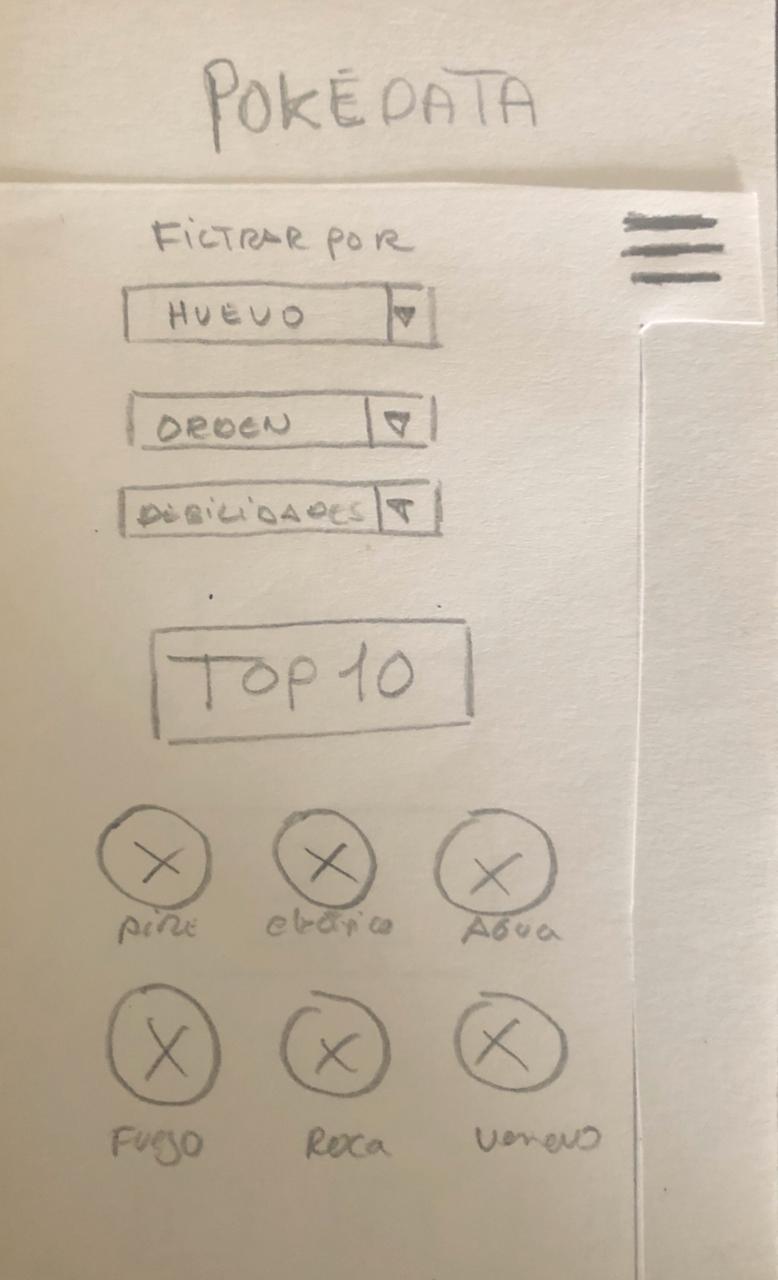 POKÉDATA
FILTRAR POR
HUEVO
ORDEN
DEBILIDADES
TOP 10
AiRE eléctrico AGUA
Fuego Roca veneno